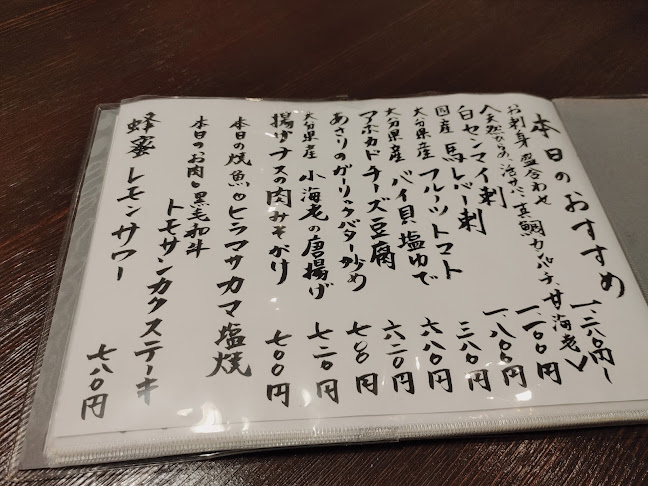 本日のおすすめ
お刺身盛合わせ 一、二八〇円〜
〈天然ひらめ、活サバ、真鯛、カンパチ、甘海老〉
白センマイ刺 一、一〇〇円
国産 馬レバー刺 一、八〇〇円
大分県産 フルーツトマト 三八〇円
大分県産 バイ貝塩ゆで 六八〇円
アボカドチーズ豆腐 六二〇円
あさりのガーリックバター炒め 七〇〇円
大分県産 小海老の唐揚げ 七二〇円
揚げナスの肉みそがけ 七〇〇円
本日の焼魚 ヒラマサカマ塩焼
本日のお肉 黒毛和牛
トモサンカクステーキ
蜂蜜レモンサワー 七八〇円